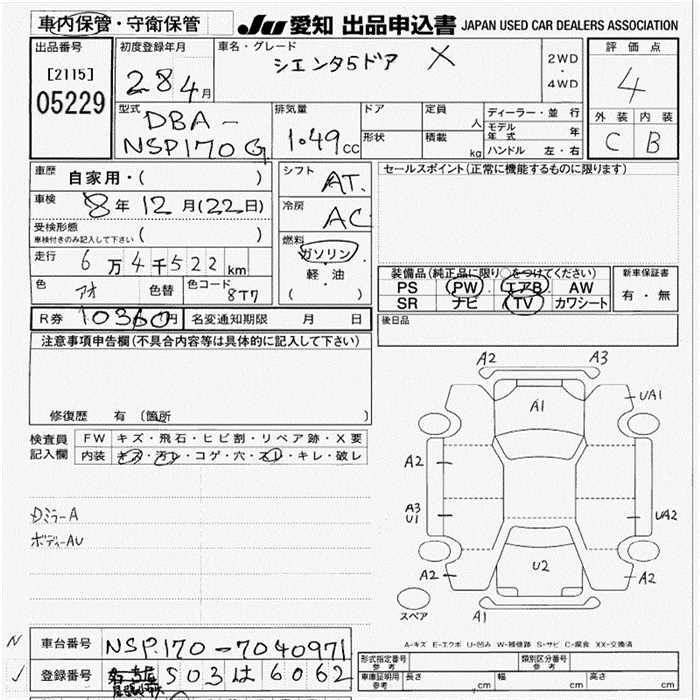 車内保管・守衛保管 JU 愛知 出品申込書 JAPAN USED CAR DEALERS ASSOCIATION
出品番号 初度登録年月 車名・グレード 評価点
[2115] 28 4月 シエンタ5ドア X 2WD・4WD 4
05229
型式 DBA- 排気量 ドア 定員 人 ディーラー・並行 外装 内装
NSP170G 1.49cc 形状 積載 kg モデル年式 年 C B
ハンドル 左・右
車歴 自家用・( ) シフト AT. セールスポイント(正常に機能するものに限ります)
車検 8年12月(22日) 冷房 AC
受検形態 ( )
車検付きのみ記入して下さい
燃料 ガソリン
走行 6万4千522km 軽・油
( )
色 アオ 色替 色コード 8T7
装備品(純正品に限り○をつけてください) 新車保証書
PS PW エアB AW 有・無
SR ナビ TV カワシート
R券 10360円 名変通知期限 月 日 後日品
注意事項申告欄(不具合内容等は具体的に記入して下さい)
修復歴 有 (箇所 )
検査員 FW キズ・飛石・ヒビ割・リペア跡・X要
記入欄 内装 キズ・汚レ・コゲ・穴・スレ・キレ・破レ
DミラーA
ボディーAU
A2 A3
A1 UA1
A2
A3
U1 UA2
A2 U2 A2
スペア A1
A-キズ E-エクボ U-凹み W-補修跡 S-サビ C-腐食 XX-交換済
N 車台番号 NSP170-7040971
登録番号 503は6062
形式指定番号 参考 類別区分番号 参考
車庫証明用 参考 長さ cm 幅 cm 高さ cm